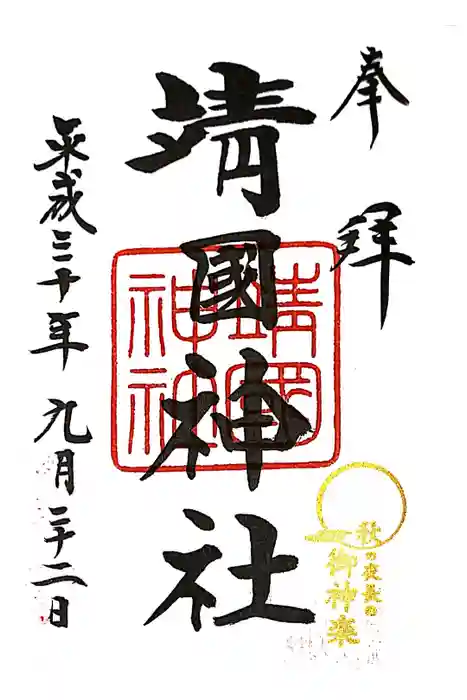 奉拝
靖國神社
靖國神社
秋の夜長の
御神楽
平成三十年九月二十二日